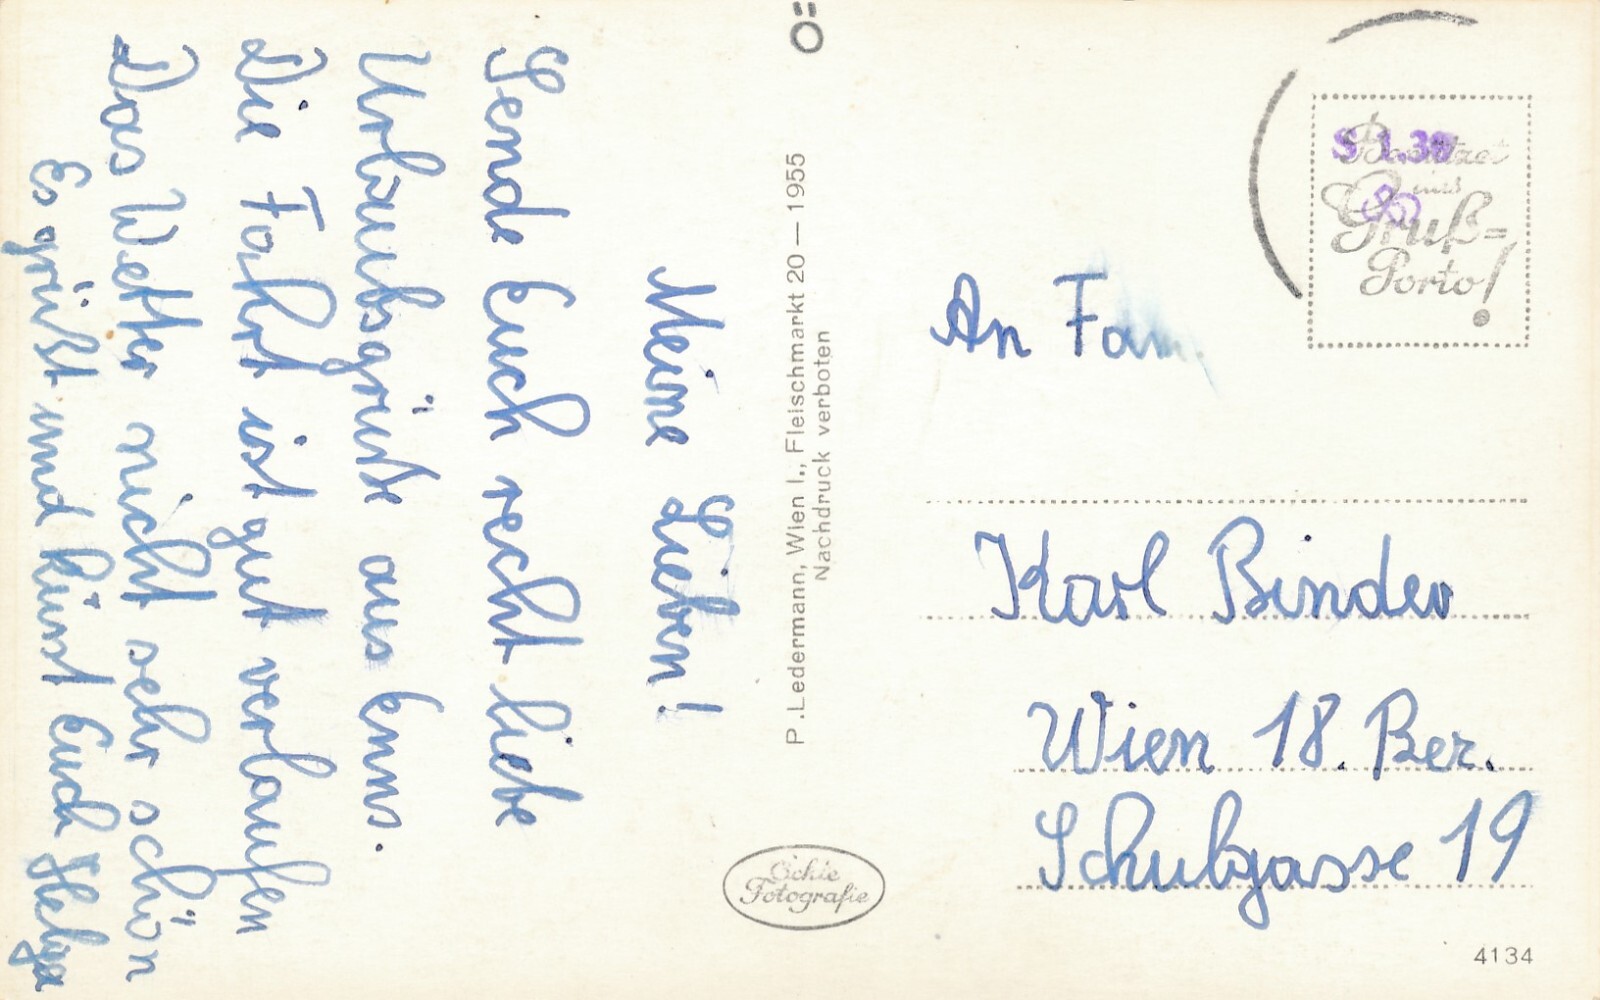 Meine Lieben!
Sende Euch recht liebe
Urlaubsgrüße aus Enns.
Die Fahrt ist gut verlaufen
Das Wetter nicht sehr schön
Es grüßt und küsst Euch Helga
P. Ledermann, Wien I., Fleischmarkt 20 — 1955
Nachdruck verboten
Echte
Fotografie
S 1.30
Benützet
das
Gruß=
Porto!
An Fam.
Karl Binder
Wien 18. Bez.
Schulgasse 19
4134